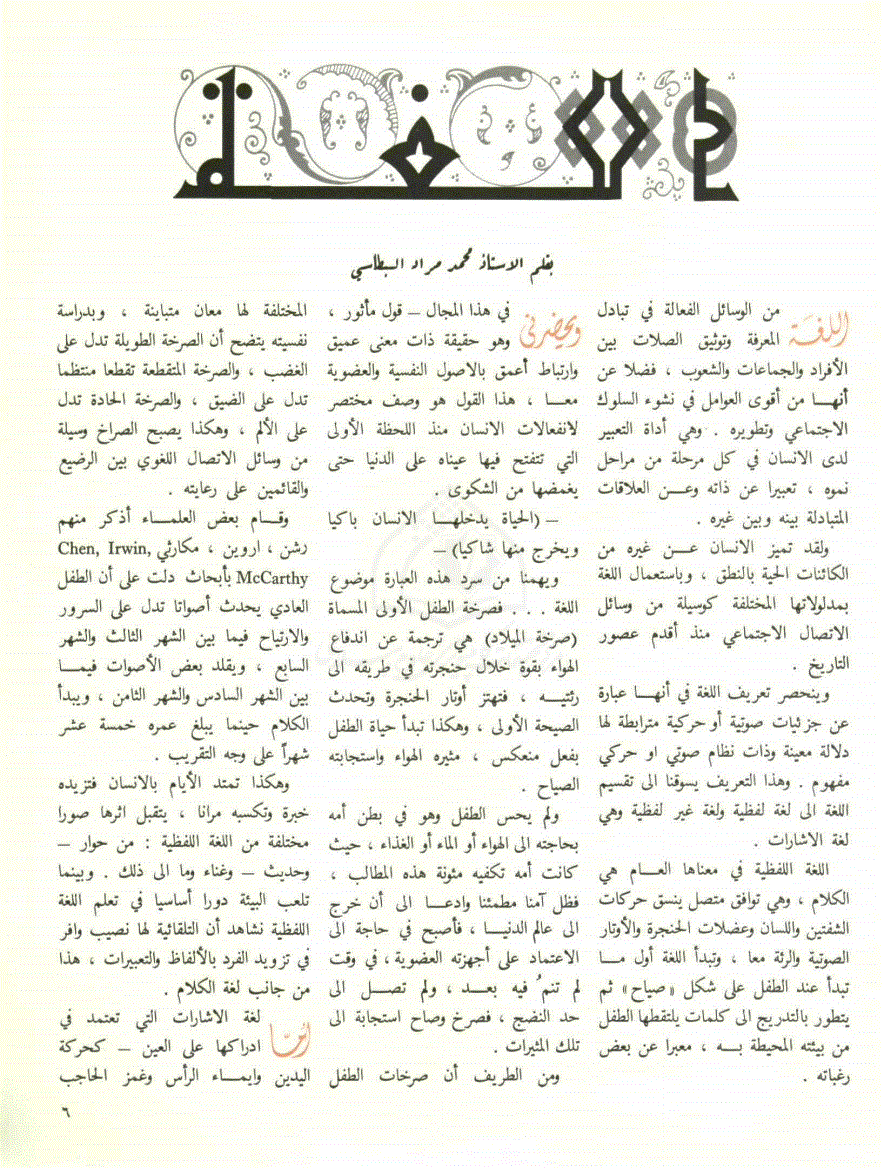 اللغة
بقلم الاستاذ محمد مراد السبطاسي
اللغة من الوسائل الفعالة في تبادل
المعرفة وتوثيق الصلات بين
الأفراد والجماعات والشعوب ، فضلا عن
أنهـــا من أقوى العوامل في نشوء السلوك
الاجتماعي وتطويره . وهي أداة التعبير
لدى الانسان في كل مرحلة من مراحل
نموه ، تعبيرا عن ذاته وعــن العلاقات
المتبادلة بينه وبين غيره .
ولقد تميز الانسان عــن غيره من
الكائنات الحية بالنطق ، وباستعمال اللغة
بمدلولاتها المختلفة كوسيلة من وسائل
الاتصال الاجتماعي منذ أقدم عصور
التاريخ .
وينحصر تعريف اللغة في أنهـــا عبارة
عن جزئيات صوتية أو حركية مترابطة لها
دلالة معينة وذات نظام صوتي او حركي
مفهوم . وهذا التعريف يسوقنا الى تقسيم
اللغة الى لغة لفظية ولغة غير لفظية وهي
لغة الاشارات .
اللغة اللفظية في معناها العــام هي
الكلام ، وهي توافق متصل ينسق حركات
الشفتين واللسان وعضلات الحنجرة والأوتار
الصوتية والرئة معا ، وتبدأ اللغة أول مــا
تبدأ عند الطفل على شكل « صياح » ثم
يتطور بالتدريج الى كلمات يلتقطها الطفل
من بيئته المحيطة بــه ، معبرا عن بعض
رغباته .
ويحضرني في هذا المجال – قول مأثور ،
وهو حقيقة ذات معنى عميق
وارتباط أعمق بالاصول النفسية والعضوية
معــا ، هذا القول هو وصف مختصر
لانفعالات الانسان منذ اللحظة الأولى
التي تتفتح فيها عيناه على الدنيا حتى
يغمضها من الشكوى .
– (الحياة يدخلهــا الانسان باكيا
ويخرج منها شاكيا) –
ويهمنا من سرد هذه العبارة موضوع
اللغة . . . فصرخة الطفل الأولى المسماة
(صرخة الميلاد) هي ترجمة عن اندفاع
الهواء بقوة خلال حنجرته في طريقه الى
رئتيــه ، فتهتز أوتار الحنجرة وتحدث
الصيحة الأولى ، وهكذا تبدأ حياة الطفل
بفعل منعكس ، مثيره الهواء واستجابته
الصياح .
ولم يحس الطفل وهو في بطن أمه
بحاجته الى الهواء أو الماء أو الغذاء ، حيث
كانت أمه تكفيه مئونة هذه المطالب ،
فظل آمنا مطمئنا وادعــا الى أن خرج
الى عالم الدنيــا ، فأصبح في حاجة الى
الاعتماد على أجهزته العضوية ، في وقت
لم تنمُ فيه بعــد ، ولم تصــل الى
حد النضج ، فصرخ وصاح استجابة الى
تلك المثيرات .
ومن الطريف أن صرخات الطفل
المختلفة لها معان متباينة ، وبدراسة
نفسيته يتضح أن الصرخة الطويلة تدل على
الغضب ، والصرخة المتقطعة تقطعا منتظما
تدل على الضيق ، والصرخة الحادة تدل
على الألم ، وهكذا يصبح الصراخ وسيلة
من وسائل الاتصال اللغوي بين الرضيع
والقائمين على رعايته .
وقــام بعض العلمــاء أذكر منهم
رشن ، اروين ، مكارثي Chen, Irwin,
McCarthy بأبحاث دلت على أن الطفل
العادي يحدث أصواتا تدل على السرور
والارتياح فيما بين الشهر الثالث والشهر
السابع ، ويقلد بعض الأصوات فيمــا
بين الشهر السادس والشهر الثامن ، ويبدأ
الكلام حينما يبلغ عمره خمسة عشر
شهراً على وجه التقريب .
وهكذا تمتد الأيام بالانسان فتزيده
خبرة وتكسبه مرانا ، يتقبل اثرها صورا
مختلفة من اللغة اللفظية : من حوار –
وحديث – وغناء وما الى ذلك . وبينما
تلعب البيئة دورا أساسيا في تعلم اللغة
اللفظية نشاهد أن التلقائية لها نصيب وافر
في تزويد الفرد بالألفاظ والتعبيرات ، هذا
من جانب لغة الكلام .
أمّا لغة الاشارات التي تعتمد في
ادراكها على العين – كحركة
اليدين وايمــاء الرأس وغمز الحاجب
٦